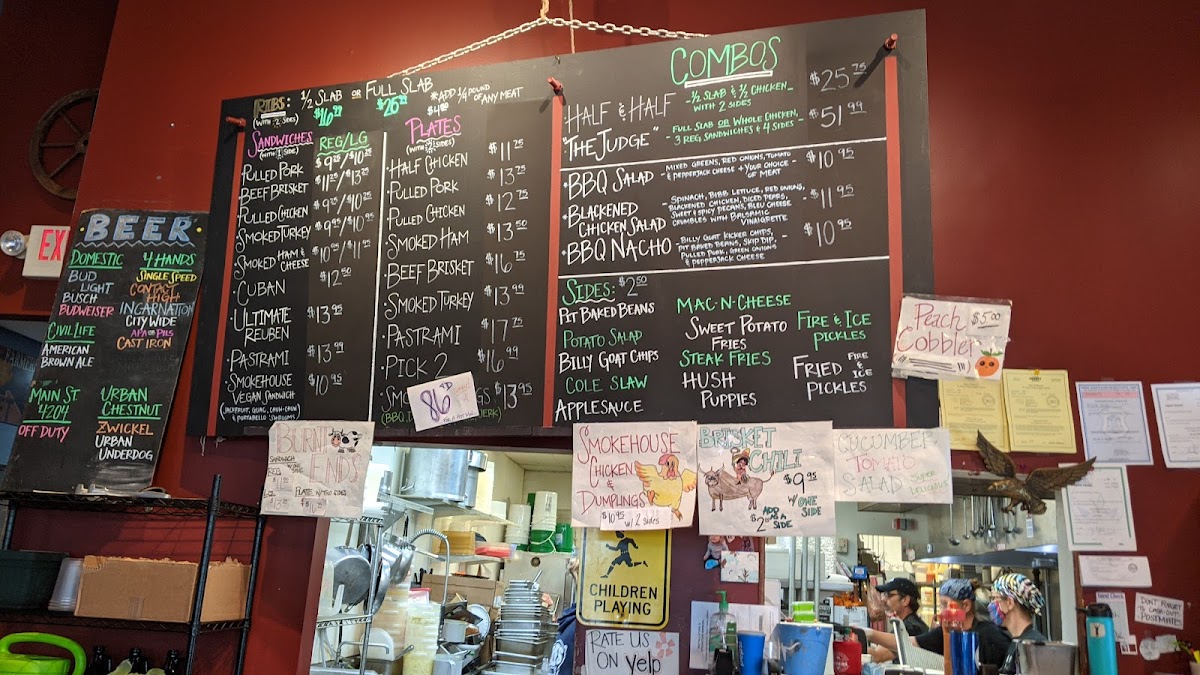 EX
BEER
DOMESTIC
BUD
LIGHT
BUSCH
BUDWEISER
CIVIL LIFE
AMERICAN
BROWN ALE
MAIN ST
4204
OFF DUTY
4 HANDS
SINGLE SPEED
CONTACT
HIGH
INCARNATION
CITY WIDE
CITY WIDE PILS
CAST IRON
URBAN
CHESTNUT
ZWICKEL
URBAN
UNDERDOG
RIBS: 1/2 SLAB OR FULL SLAB
(WITH 2 SIDES) $16.99 $26.99
*ADD 1/4 POUND
$4.80 OF ANY MEAT
SANDWICHES REG/LG
(WITH 1 SIDE)
PULLED PORK $9.25/$10.25
BEEF BRISKET $11.25/$13.25
PULLED CHICKEN $9.25/$10.25
SMOKED TURKEY $9.95/$10.95
SMOKED HAM &
CHEESE $10.95/$11.95
CUBAN $12.50
ULTIMATE
REUBEN $13.95
PASTRAMI $13.99
SMOKEHOUSE
VEGAN SANDWICH $10.95
(JACKFRUIT, GUAC, CHOW-CHOW
& PORTABELLO 'SHROOMS)
PLATES
(WITH 2 SIDES)
HALF CHICKEN $11.25
PULLED PORK $13.75
PULLED CHICKEN $12.75
SMOKED HAM $13.50
BEEF BRISKET $16.75
SMOKED TURKEY $13.99
PASTRAMI $17.75
PICK 2 $16.99
$13.95
86'D
COMBOS
HALF & HALF -1/2 SLAB & 1/2 CHICKEN-
WITH 2 SIDES $25.75
"THE JUDGE" - FULL SLAB OR WHOLE CHICKEN,
3 REG SANDWICHES & 4 SIDES - $51.99
BBQ SALAD - MIXED GREENS, RED ONIONS, TOMATO
& PEPPERJACK CHEESE + YOUR CHOICE
OF MEAT - $10.95
BLACKENED
CHICKEN SALAD - SPINACH, BIBB LETTUCE, RED ONIONS,
BLACKENED CHICKEN, DICED PEPPERS,
SWEET & SPICY PECANS, BLEU CHEESE
CRUMBLES WITH BALSAMIC
VINAIGRETTE - $11.95
BBQ NACHO - BILLY GOAT KICKER CHIPS,
PIT BAKED BEANS, SKIP DIP,
PULLED PORK, GREEN ONIONS
& PEPPERJACK CHEESE - $10.95
SIDES: $2.50
PIT BAKED BEANS
POTATO SALAD
BILLY GOAT CHIPS
COLE SLAW
APPLESAUCE
MAC-N-CHEESE
SWEET POTATO
FRIES
STEAK FRIES
HUSH
PUPPIES
FIRE & ICE
PICKLES
FRIED FIRE & ICE
PICKLES
Peach $5.00
Cobbler
BURNT
ENDS
SANDWICH
PLATE W/TWO SIDES
SMOKEHOUSE
CHICKEN
&
DUMPLINGS
$10.95 w/ 2 SIDES
BRISKET
CHILI
$9.95
W/ ONE
SIDE
ADD
$2 AS A
SIDE
CUCUMBER
TOMATO
SALAD SUPER
DELICIOUS
CHILDREN
PLAYING
RATE US
ON yelp
DON'T FORGET
TO CASH-OUT
POSTMATES